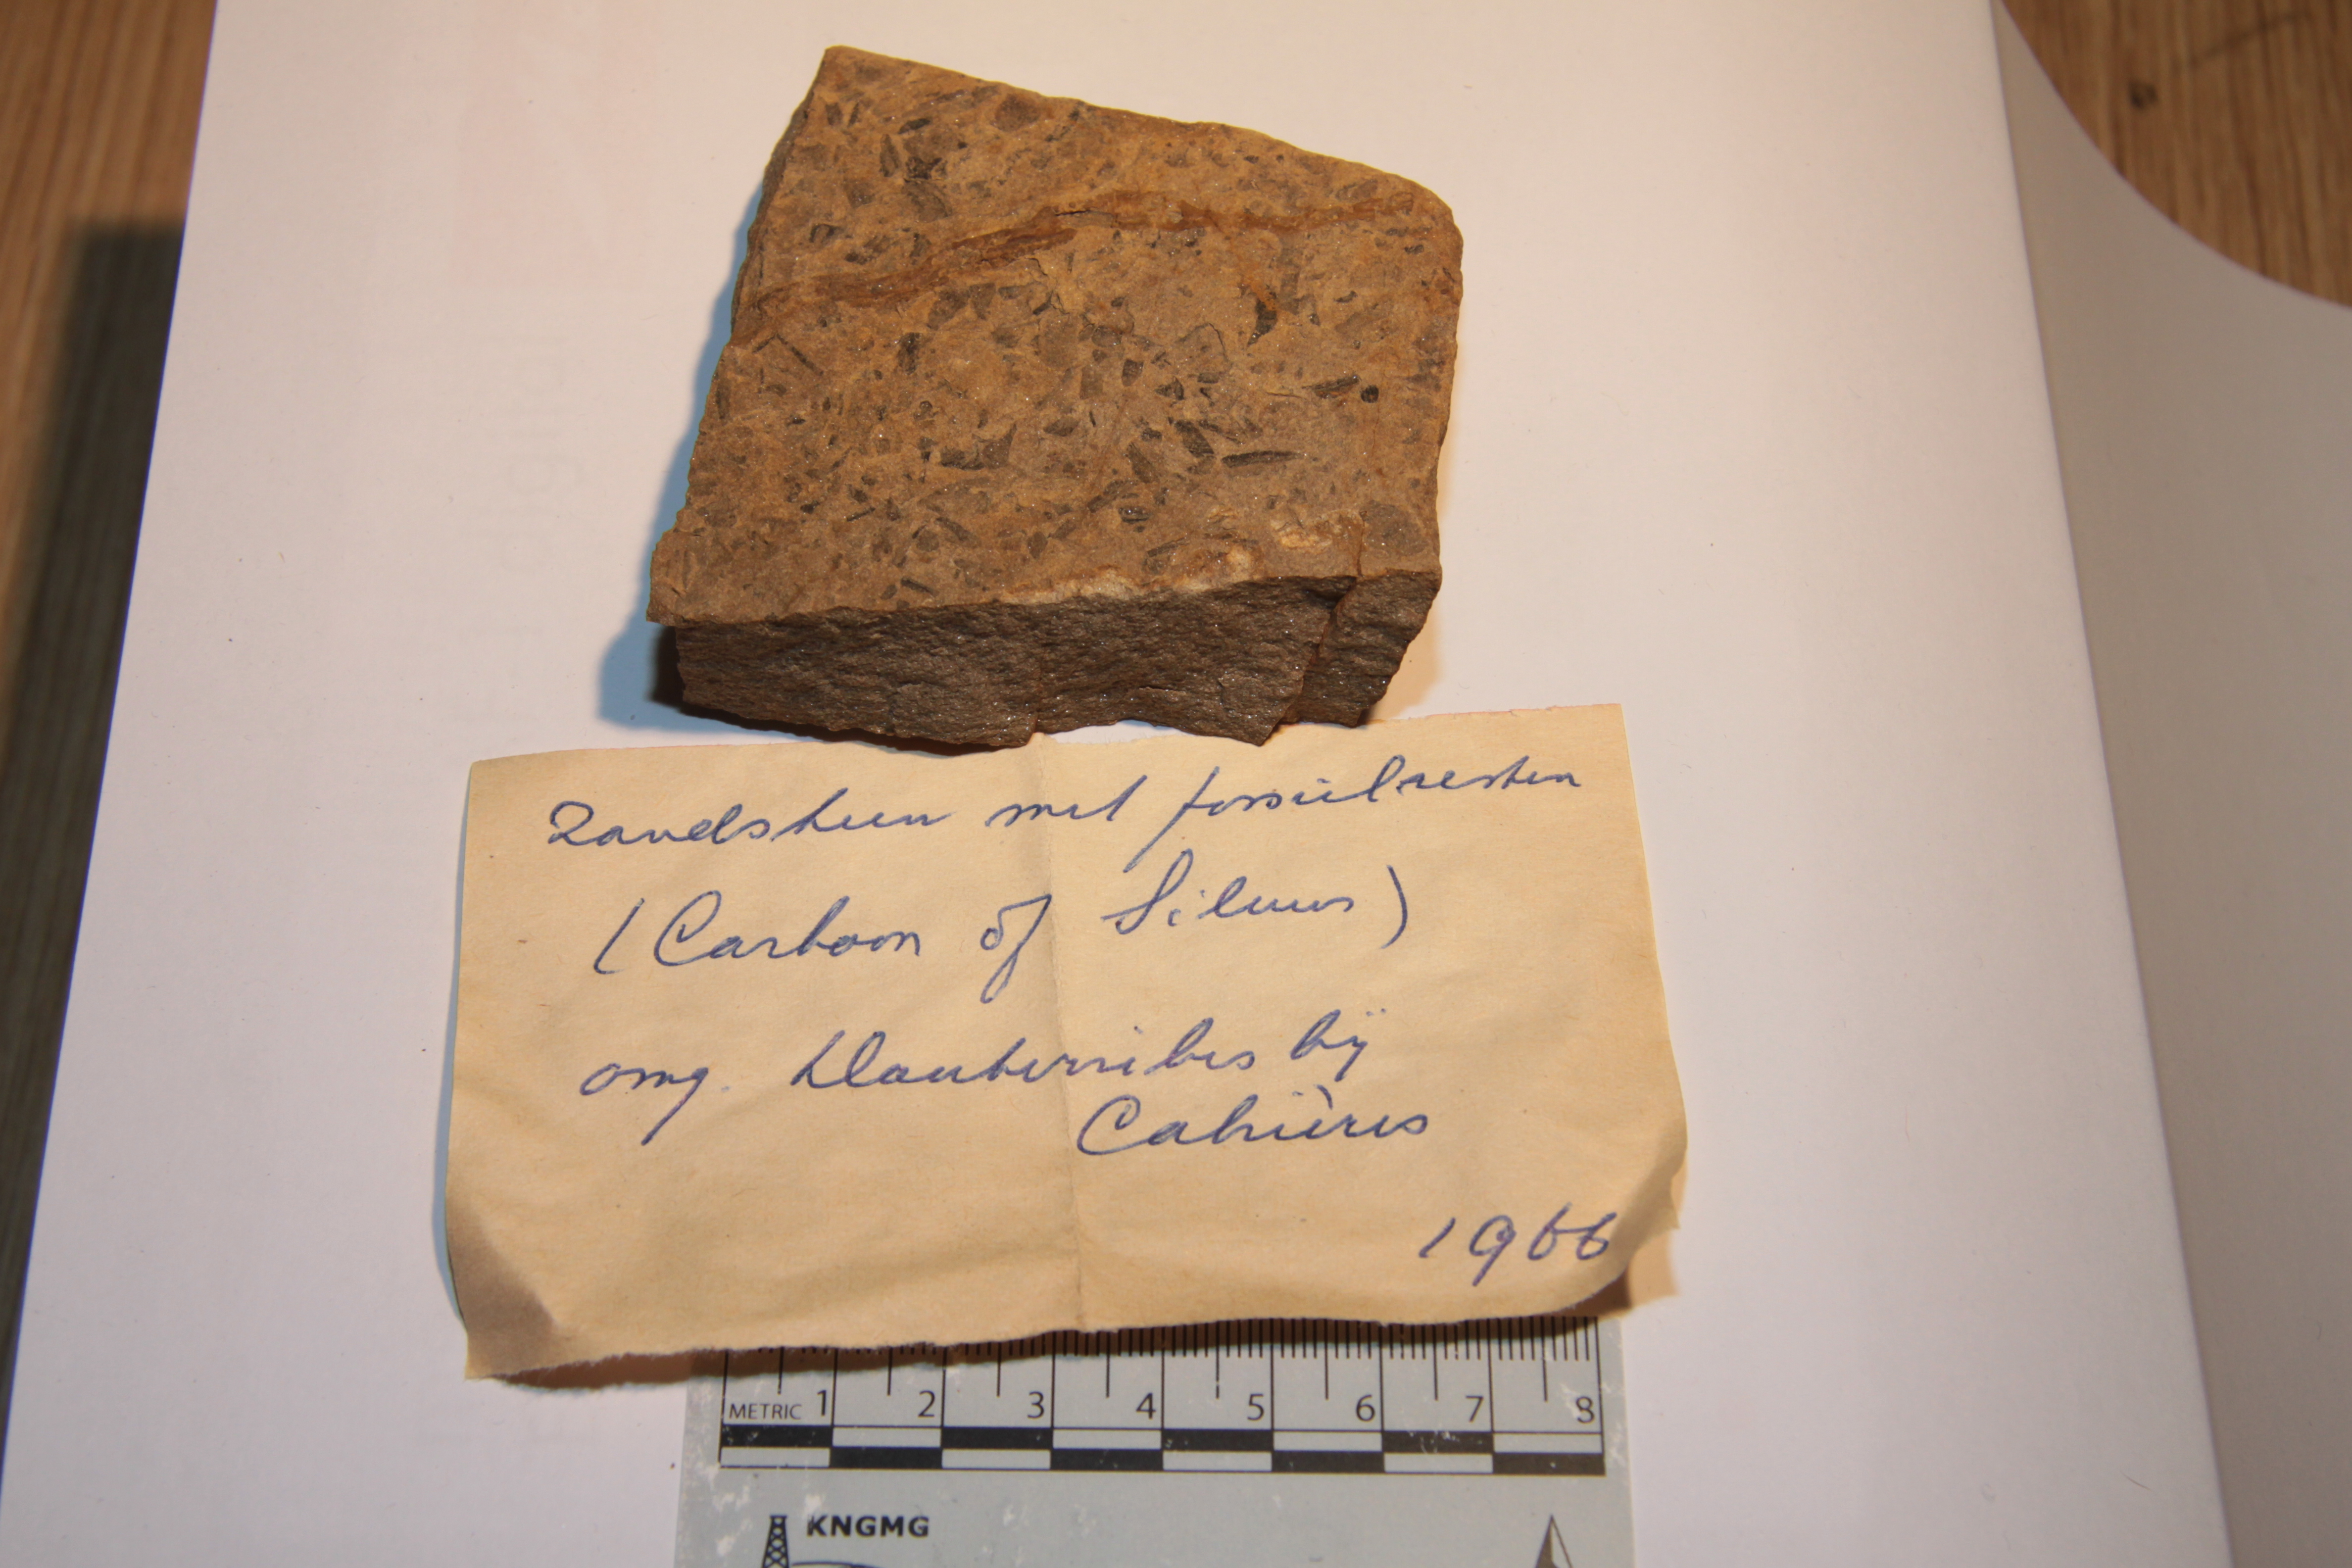 Zandsteen met fossielresten
(Carboon of Siluur)
omg. bij
Cabrières
1966
METRIC 1 2 3 4 5 6 7 8
KNGMG